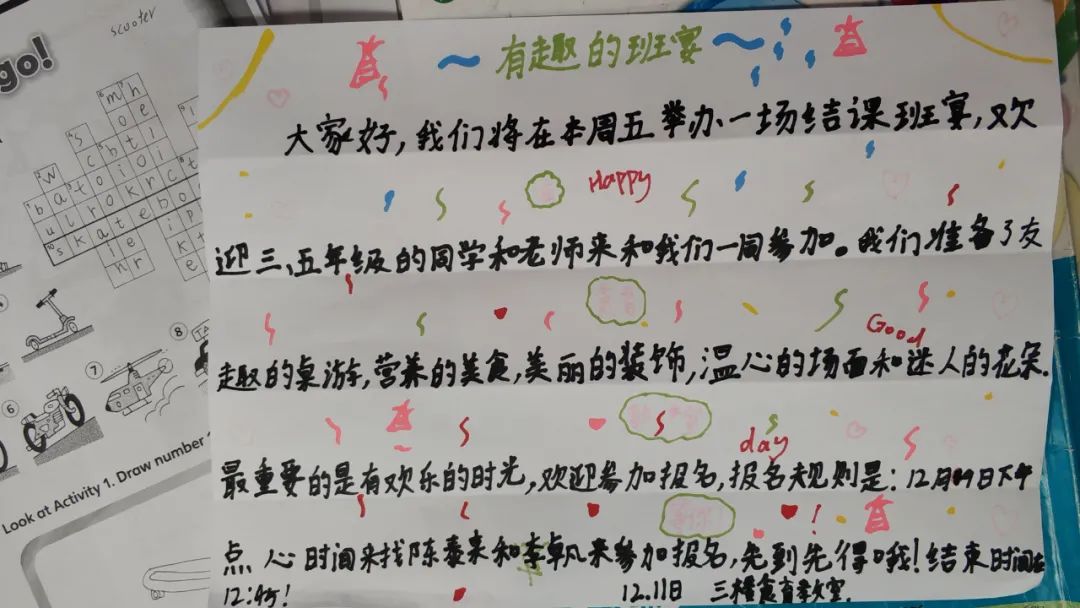 scooter
go!
Look at Activity 1. Draw number
有趣的班宴
大家好，我们将在本周五举办一场结课班宴，欢
Happy
迎三、五年级的同学和老师来和我们一同参加。我们准备了有
Good
趣的桌游，营养的美食，美丽的装饰，温心的场面和迷人的花朵.
day
最重要的是有欢乐的时光，欢迎参加报名，报名规则是：12月9日下午
点心时间来找陈泰来和李卓凡来参加报名，先到先得哦！结束时间在
12:45！
12.11日 三楼食育教室.